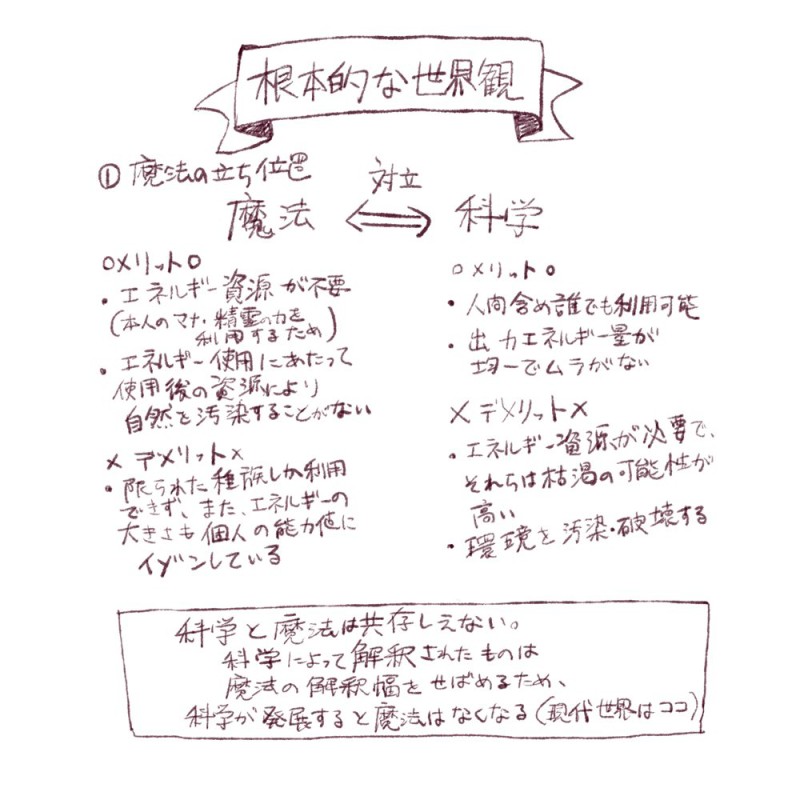 根本的な世界観
① 魔法の立ち位置
対立
魔法 ⇔ 科学
○メリット○
・エネルギー資源が不要
(本人のマナ・精霊の力を
利用するため)
・エネルギー使用にあたって
使用後の資源により
自然を汚染することがない
×デメリット×
・限られた種族しか利用
できず、また、エネルギーの
大きさも個人の能力値に
イゾンしている
○メリット○
・人間含め誰でも利用可能
・出力エネルギー量が
均一でムラがない
×デメリット×
・エネルギー資源が必要で、
それらは枯渇の可能性が
高い
・環境を汚染・破壊する
科学と魔法は共存しえない。
科学によって解釈されたものは
魔法の解釈幅をせばめるため、
科学が発展すると魔法はなくなる(現代世界はココ)